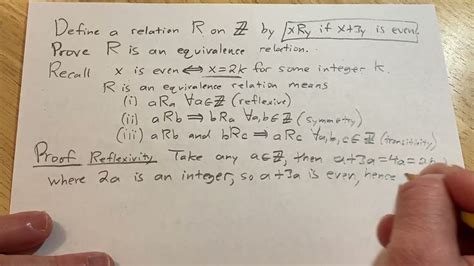 Define a relation R on ℤ by xRy if x+3y is even.
Prove R is an equivalence relation.
Recall x is even ⟺ x=2k for some integer k.
R is an equivalence relation means
(i) aRa ∀a∈ℤ (reflexive)
(ii) aRb ⟹ bRa ∀a,b∈ℤ (symmetry)
(iii) aRb and bRc ⟹ aRc ∀a,b,c∈ℤ (transitivity)
Proof Reflexivity Take any a∈ℤ, then a+3a=4a=2(
where 2a is an integer, so a+3a is even, hence